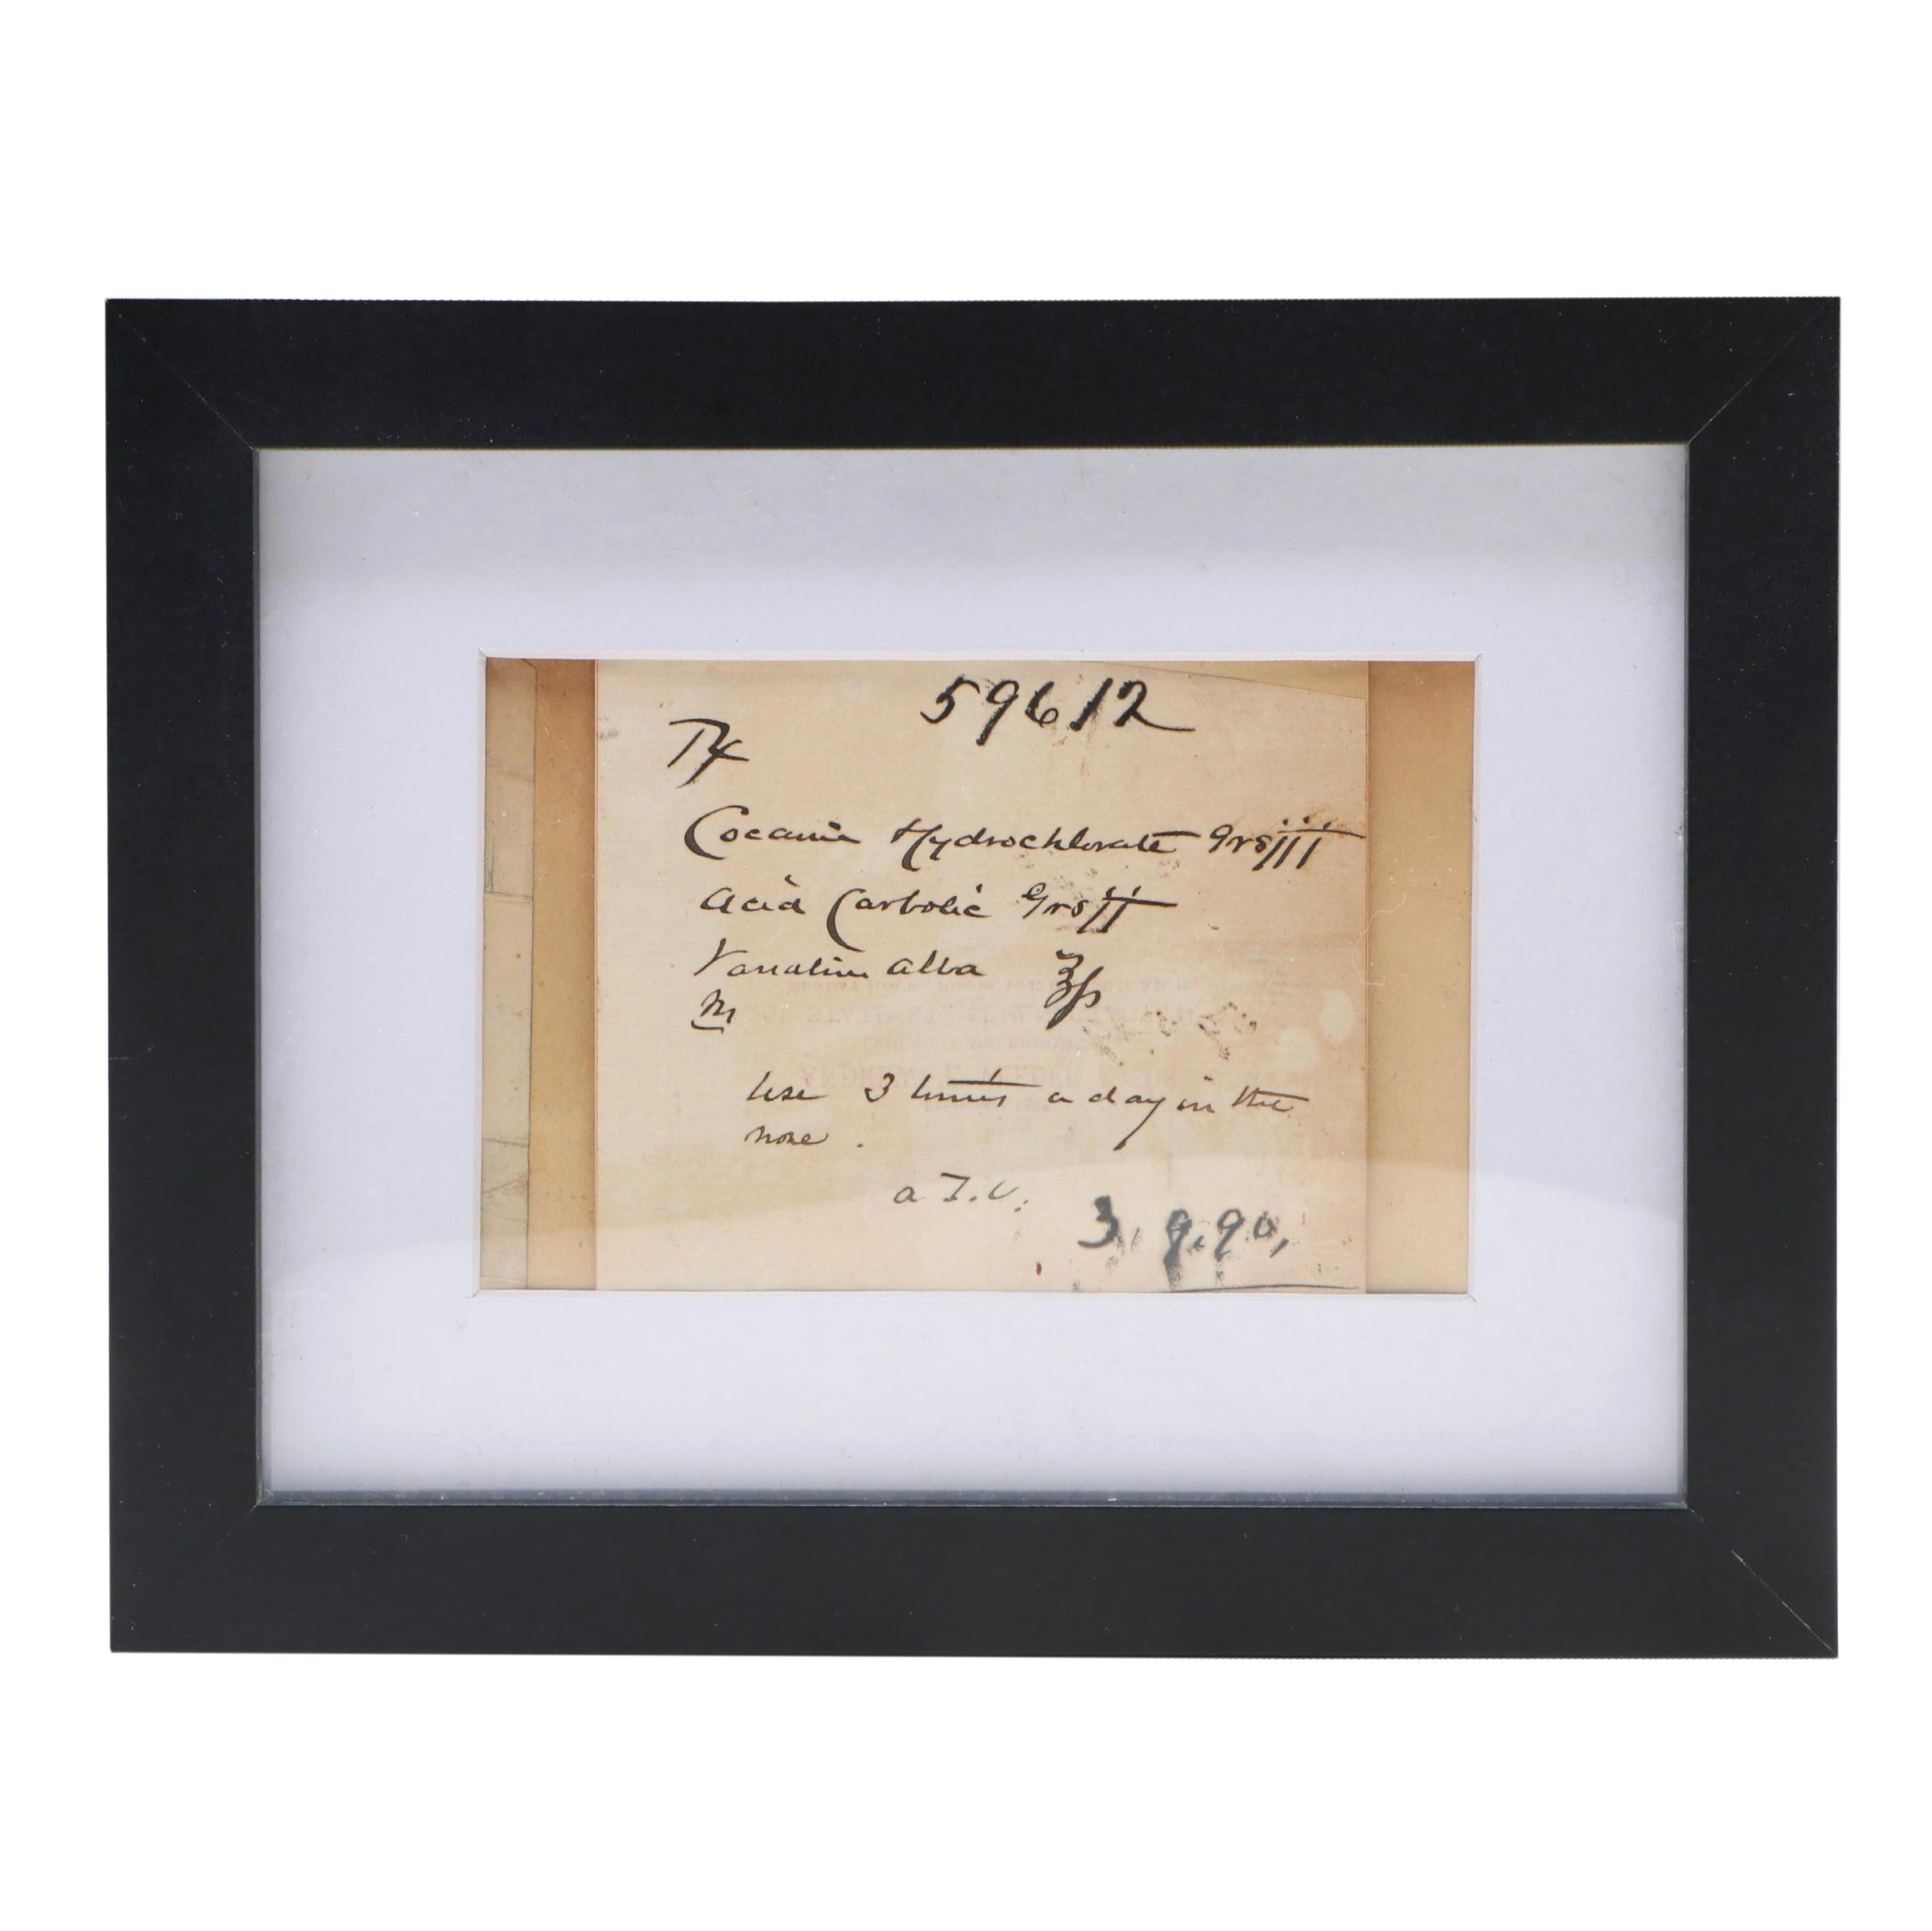 59612
Rx
Cocaine Hydrochlorate grs iii
Acid Carbolic grs ii
alba ʒ
M
Use 3 times a day in the
nose.
3, 9, 90,